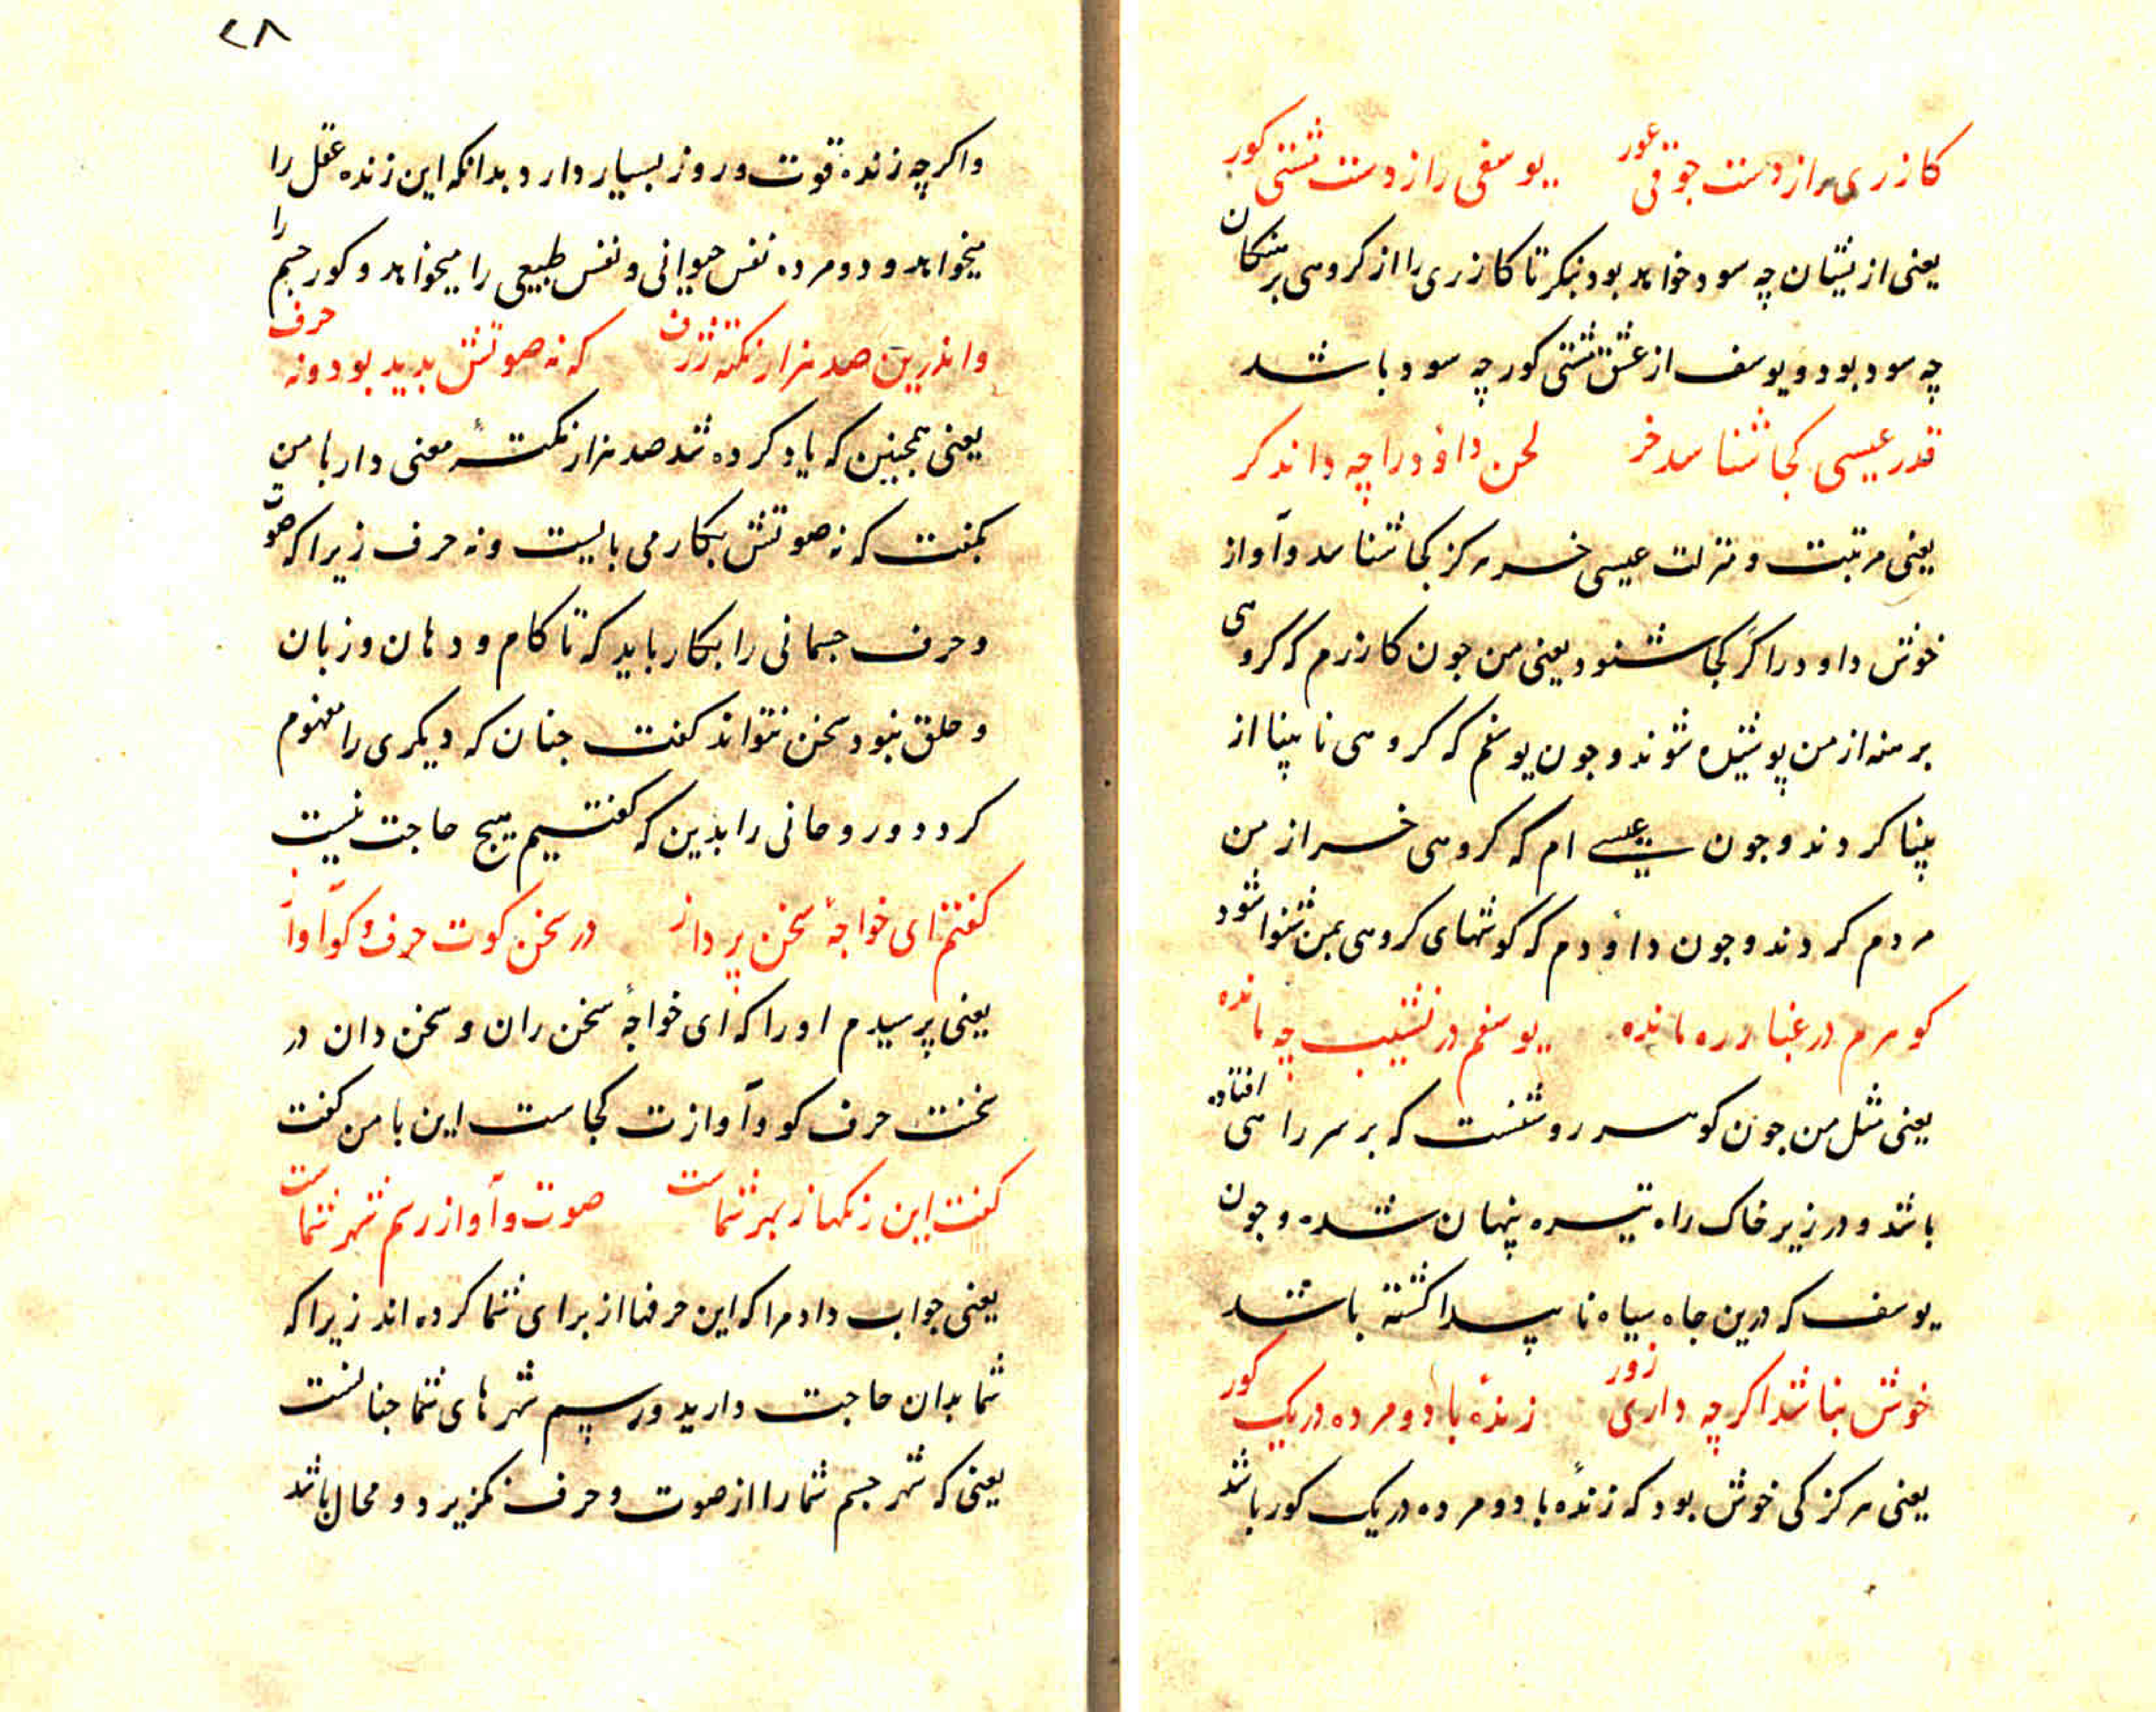 کازری را از دست جوقی عور یوسفی را از دست مشتی کور
یعنی ازیشان چه سود خواهد بود بنکر تا کازری را از کروهی برهنکان
چه سود بود و یوسف از عشق مشتی کور چه سود باشد
قدر عیسی کجا شناسد خر لحن داؤد را چه داند کر
یعنی مرتبت و منزلت عیسی خر هرکز کجا شناسد و آواز
خوش داود را کر کجا شنود یعنی من جون کازرم که کروهی
برهنه از من پوشیده شوند و جون یوسفم که کروهی نابینا از
بینا کردند و جون عیسی ام که کروهی خر از من
مردم کردند و جون داؤدم که کوشهای کروهی بمن شنوا شود
کوهرم در غبار ره مانده یوسفم در نشیب چه مانده
یعنی مثل من جون کوهر روشنست که بر سر راهی افتاده
باشد و در زیر خاک راه تیره پنهان شده و جون
یوسف که درین جاه سیاه ناپیدا کشته باشد
خوش نباشد اکرچه داری زور زندهٔ با دو مرده در یک کور
یعنی هرکز کی خوش بود که زندهٔ با دو مرده در یک کور باشد
۲۸
واکرچه زنده قوت و روز بسیار دارد بدانکه این زنده عقل را
میخواهد و دو مرده نفس حیوانی و نفس طبیعی را میخواهد و کور جسم را
واندرین صد هزار نکته ژرف که نه صوتش بدید بود و نه حرف
یعنی همجنین که یاد کرده شد صد هزار نکتهٔ معنی دار با من
بکفت که نه صوتش بکار می بایست و نه حرف زیرا که صوت
و حرف جسمانی را بکار باید که تا کام و دهان و زبان
و حلق نبود سخن نتواند کفت جنان که دیکری را مفهوم
کردد و روحانی را بدین که کفتیم هیج حاجت نیست
کفتم ای خواجهٔ سخن پرداز در سخن کوت حرف و کو آواز
یعنی پرسیدم او را که ای خواجهٔ سخن ران و سخن دان در
سخنت حرف کو و آوازت کجاست این با من کفت
کفت این رنکها ز بهر شماست صوت و آواز رسم شهر شماست
یعنی جواب داد مرا که این حرفها از برای شما کرده اند زیرا که
شما بدان حاجت دارید و رسم شهرهای شما جنانست
یعنی که شهر جسم شما را از صوت و حرف نکزیرد و محال باشد